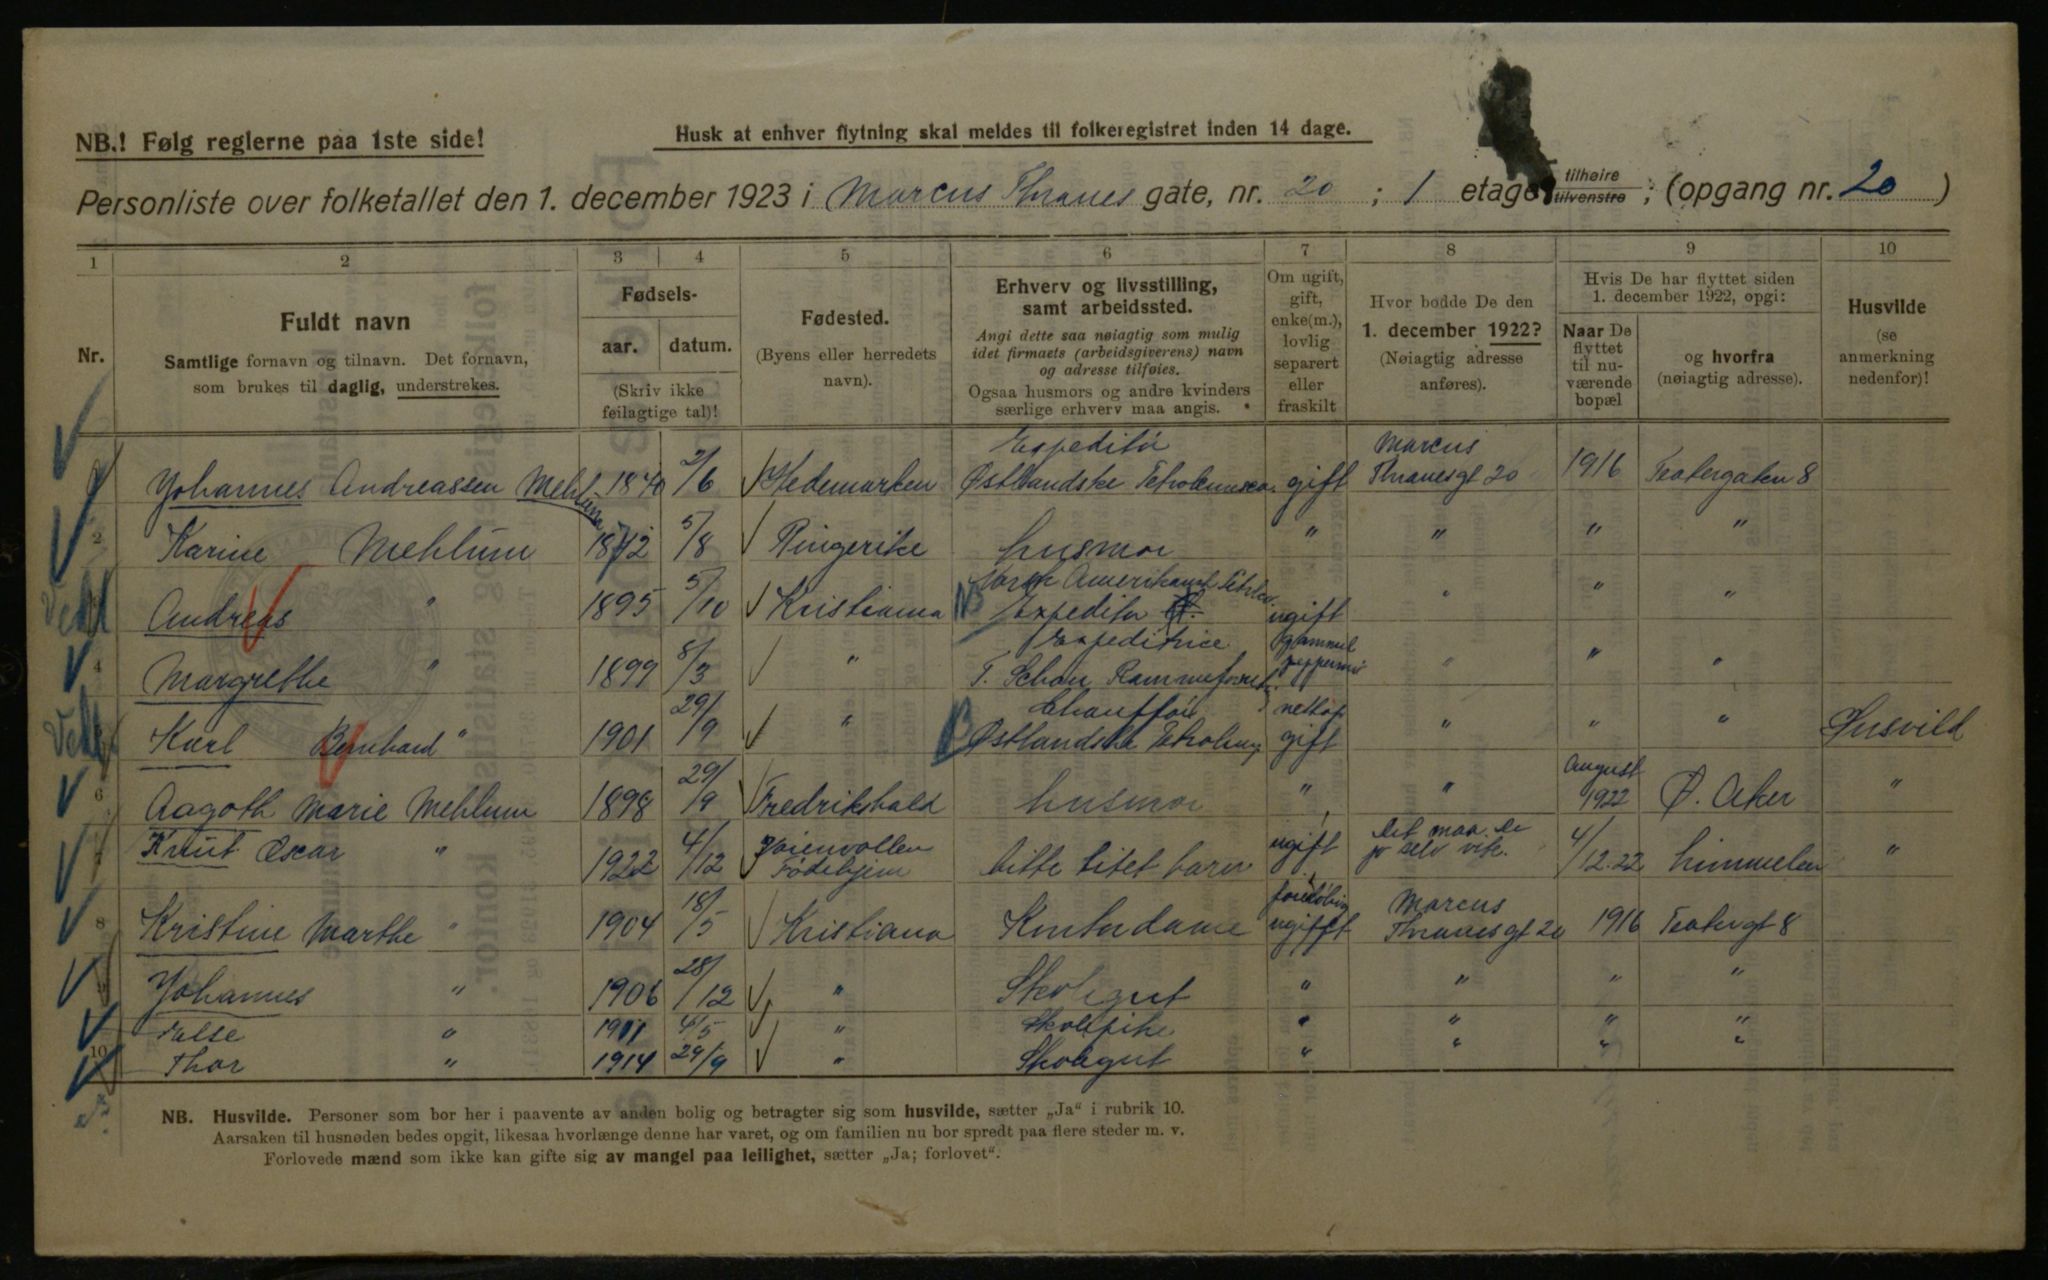 NB.! Følg reglerne paa 1ste side!
Husk at enhver flytning skal meldes til folkeregistret inden 14 dage.
Personliste over folketallet den 1. december 1923 i Marcus Thranes gate, nr. 20 ; 1 etage tilhøire tilvenstre ; (opgang nr. 20 )
1 2 3 4 5 6 7 8 9 10
Nr.
Fuldt navn
Samtlige fornavn og tilnavn. Det fornavn,
som brukes til daglig, understrekes.
Fødsels-
aar. datum.
(Skriv ikke
feilagtige tal)!
Fødested.
(Byens eller herredets
navn).
Erhverv og livsstilling,
samt arbeidssted.
Angi dette saa nøiagtig som mulig
idet firmaets (arbeidsgiverens) navn
og adresse tilføies.
Ogsaa husmors og andre kvinders
særlige erhverv maa angis.
Om ugift,
gift,
enke(m.),
lovlig
separert
eller
fraskilt
Hvor bodde De den
1. december 1922?
(Nøiagtig adresse
anføres).
Hvis De har flyttet siden
1. december 1922, opgi:
Naar De
flyttet
til nu-
værende
bopæl
og hvorfra
(nøiagtig adresse).
Husvilde
(se
anmerkning
nedenfor)!
Yohannes Andreassen Mehlum 1870 2/6 Hedemarken Expeditør Østlandske Petroleumsco. gift Marcus Thranesgt 20 1916 Teatergaten 8
2 Karine Mehlum 1872 5/8 Ringerike husmor " " " "
Andreas " 1895 5/10 Kristiania Norsk Amerikansk Expeditør ugift " " "
4 Margrethe " 1899 8/3 " Expeditrice T. Schou Rammeforret. gammel peppermø " " "
Karl Bernhard " 1901 29/9 " Chauffør Østlandske Petroleum nettop gift " " " Husvild
6 Aagoth Marie Mehlum 1898 29/9 Fredrikshald husmor " " August 1922 Ø. Aker "
7 Knut Oscar " 1922 4/12 Fødehjem bitte litet barn ugift det maa De jo selv vite. 4/12.22 himmelen "
8 Kristine Marthe " 1904 18/5 Kristiana Kontordame foreløbig ugift Marcus Thranesgt 20 1916 Teatergt 8
9 Yohannes " 1906 28/12 " Skolegut " " " "
" 1911 4/5 " Skolepike " " " "
10 Thor " 1914 29/9 " Skolegut " " " "
NB. Husvilde. Personer som bor her i paavente av anden bolig og betragter sig som husvilde, sætter „Ja“ i rubrik 10.
Aarsaken til husnøden bedes opgit, likesaa hvorlænge denne har varet, og om familien nu bor spredt paa flere steder m. v.
Forlovede mænd som ikke kan gifte sig av mangel paa leilighet, sætter „Ja; forlovet“.